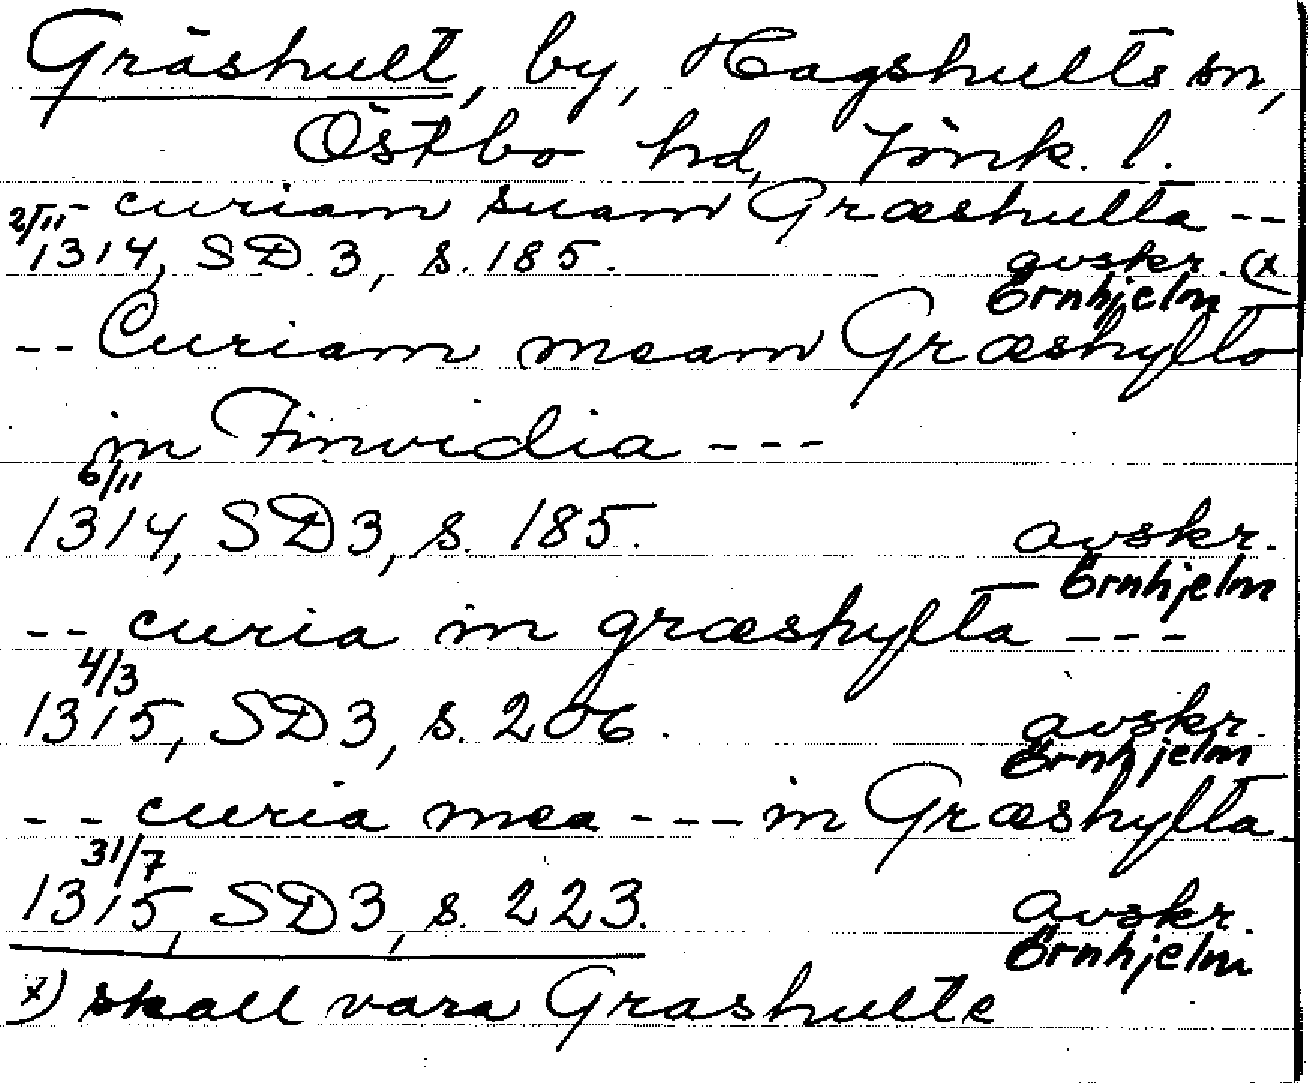 Gräshult, by, Hagshults sn,
Östbo hd, Jönk. l.
curiam suam Græshulta --
2/11 1314, SD 3, s. 185. avskr. (x
Örnhjelm
-- Curiam meam Græshylta
in Finvidia ---
6/11
1314, SD3, s. 185. avskr.
Örnhjelm
-- curia in græshylta ---
4/3
1315, SD3, s. 206. avskr.
Örnhjelm
-- curia mea --- in Græshylta.
31/7
1315, SD3, s. 223. avskr.
Örnhjelm
x) skall vara Grashulte